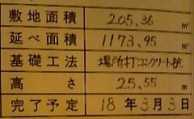 敷地面積 205.36 ㎡
延べ面積 1173.95 ㎡
基礎工法 場所打コンクリート杭
高さ 25.55 m
完了予定 18年3月3日